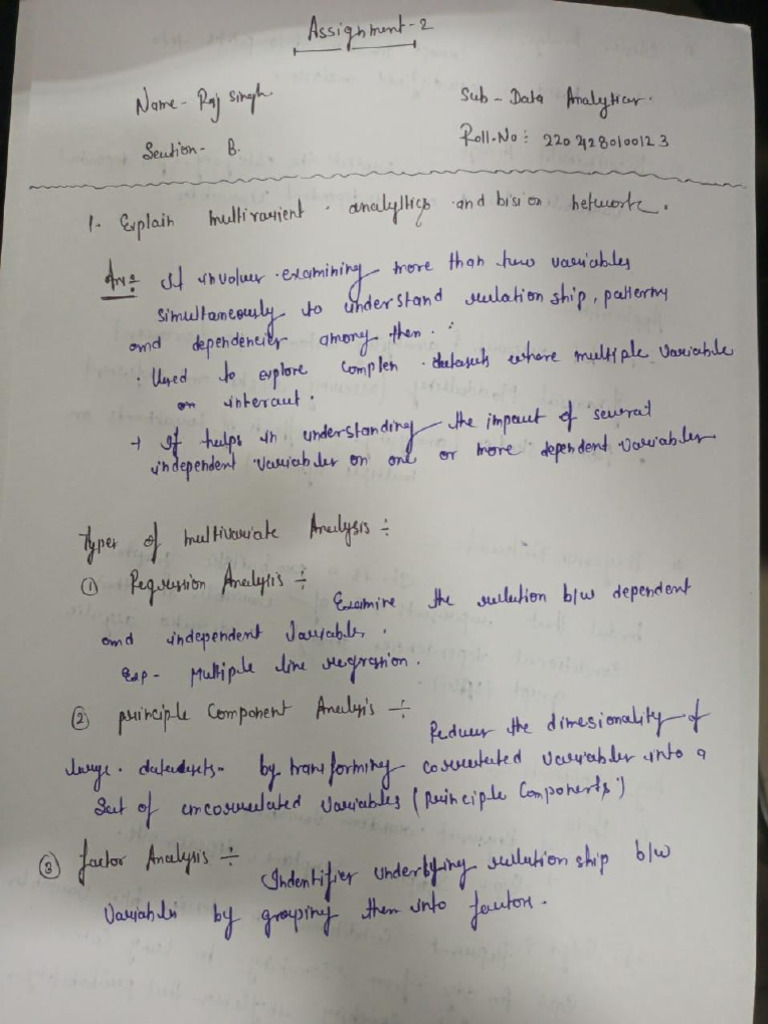 Assignment-2
Name- Raj Singh
Sub - Data Analytics.
Section- B.
Roll.No: 2204280100123
1- Explain multivarient analyltics and bision network.
Ans: It involver examining more than two variables
simultaneously to understand relation ship, patterns
and dependencies among then.
· Used to explore complen datasets where multiple variable
on interact.
→ If helps in understanding the impact of several
independent variables on one or more dependent variables
Types of multivariate Analysis ÷
① Regression Analysis ÷
Examine the relution b/w dependent
and independent variables.
Exp- Multiple line regression.
② principle Component Analysis ÷
Reduces the dimesionality of
large datadsets- by transforming correlated variables into a
Set of uncorrelated variables (Principle Components)
③ factor Analysis ÷
Indentifier underlying relution ship b/w
Variables by grouping then into factors.